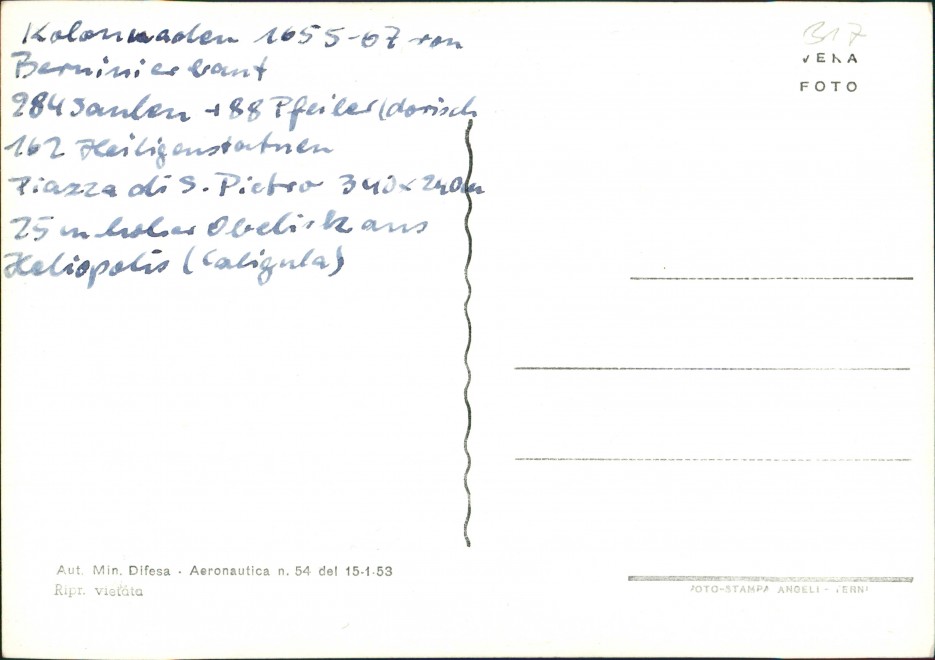 Kolonnaden 1655-67 von
Bernini erbaut
284 Säulen + 88 Pfeiler (dorisch
162 Heiligenstatuen
Piazza di S. Pietro 340 x 240 m
25 m hoher Obelisk aus
Heliopolis (Caligula)
B17
VERA
FOTO
Aut. Min. Difesa - Aeronautica n. 54 del 15-1-53
Ripr. vietata
FOTO-STAMPA ANGELI - TERNI